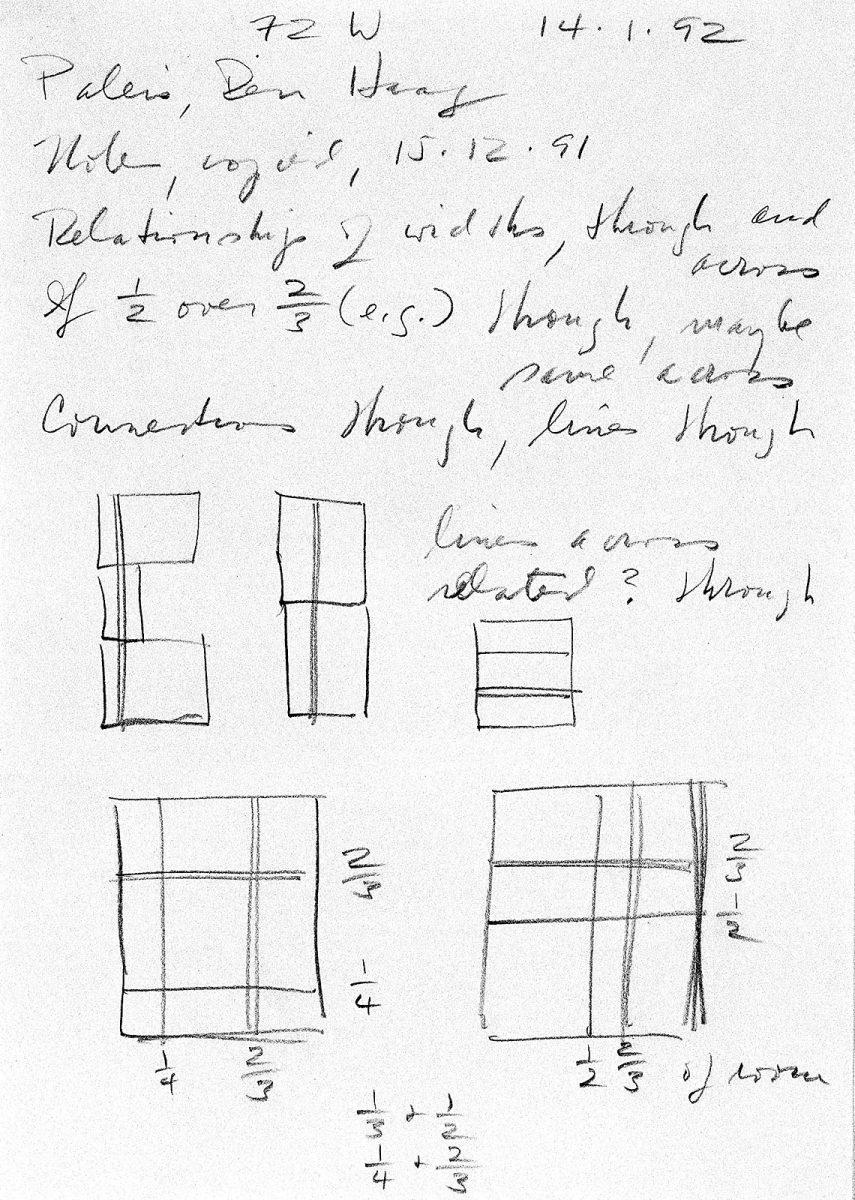 72 W 14.1.92
Paleis, Den Haag
Note, copied, 15.12.91
Relationship of widths, through and
across
If 1/2 over 2/3 (e.g.) through, maybe
same across
Connections through, lines through
lines across
related? through
2/3
1/4
1/4 2/3
2/3
1/2
1/2 2/3 of room
1/3 + 1/2
1/4 + 2/3